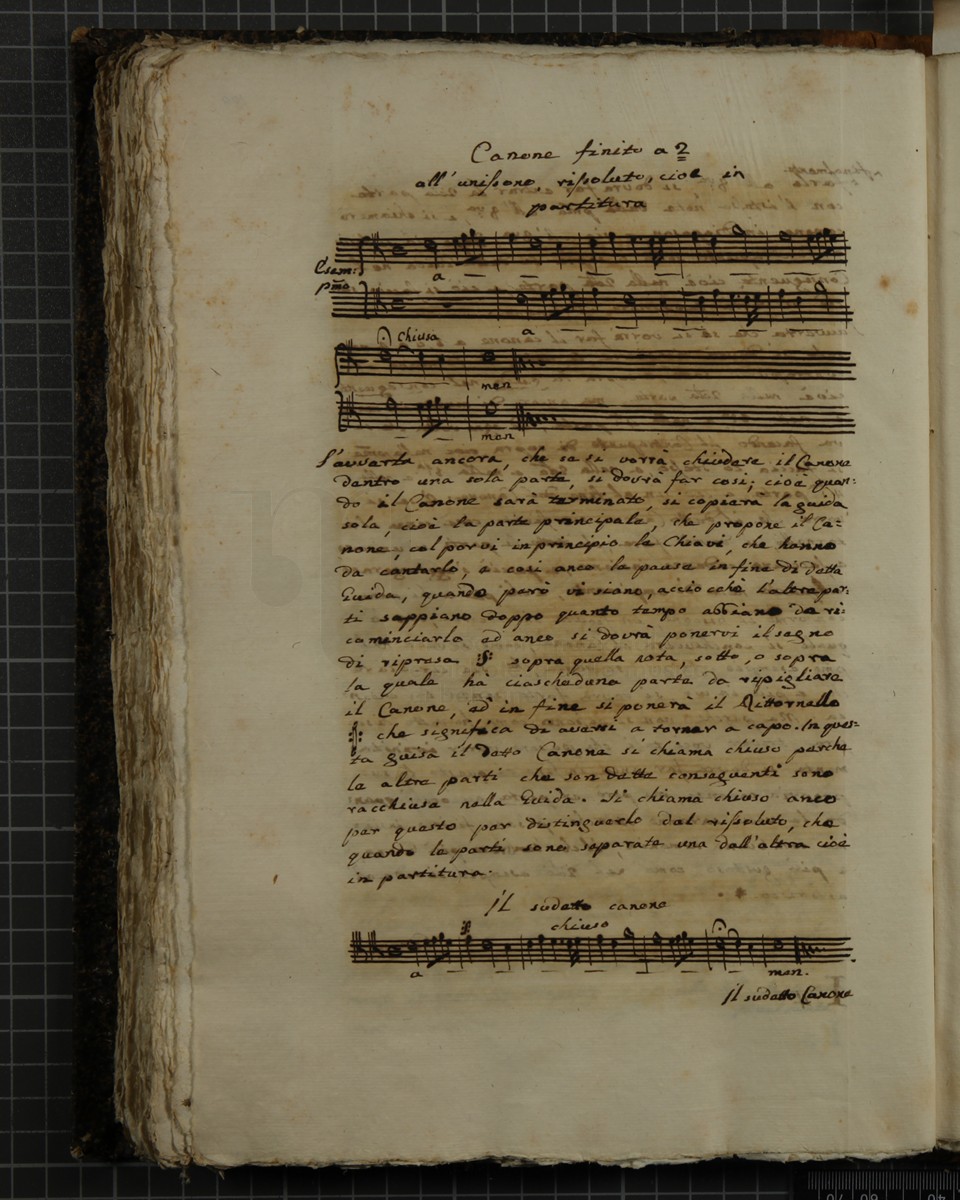 Canone finito a 2
all'unissono, rissoluto, cioè in
partitura
Esem:
pmo
a
a
Chiusa
men
men
S'averta ancora, che se si vorrà chiudere il Canone
dentro una sola parte, si dovrà far cosi; cioè quan:
do il Canone sarà terminato, si copierà la guida
sola, cioè la parte principale, che propone il Ca:
none, col porvi in principio le Chiavi, che hanno
da cantarlo, e cosi anco le pause in fine di detta
Guida, quando però vi siano, acciocchè l'altre par:
ti sappiano doppo quanto tempo abbiano da ri:
cominciarlo ed anco si dovrà ponervi il segno
di ripresa :S: sopra quella nota, sotto, o sopra
la quale hà ciascheduna parte da ripigliare
il Canone, ed in fine si ponerà il Rittornello
che significa di aversi a tornar a capo. In ques-
ta guisa il detto Canone si chiama chiuso perche
le altre parti che son dette conseguenti sono
racchiuse nella Guida. Si chiama chiuso anco
per questo per distinguerlo dal rissoluto, che
quando le parti sono separate una dall'altra cioè
in partitura.
Il sudetto canone
chiuso
a
men.
Il sudetto Canone